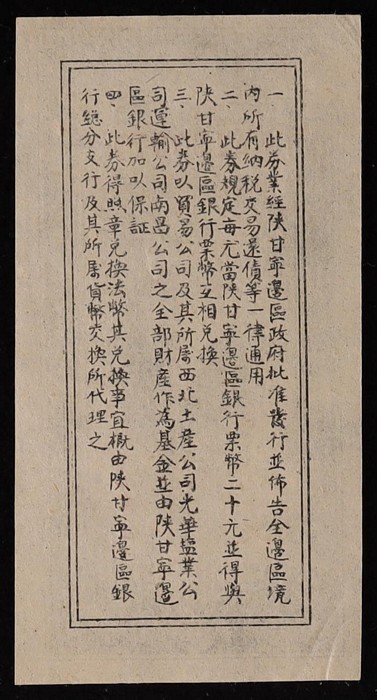 一、此券業經陝甘寧邊區政府批准發行並佈告全邊區境
內所有納稅交易還債等一律通用
二、此券規定每元當陝甘寧邊區銀行票幣二十元並得與
陝甘寧邊區銀行票幣互相兌換
三、此券以貿易公司及其所屬西北土產公司光華鹽業公
司運輸公司南昌公司之全部財產作為基金並由陝甘寧邊
區銀行加以保証
四、此券得照章兌換法幣其兌換事宜概由陝甘寧邊區銀
行總分支行及其所屬貨幣交換所代理之